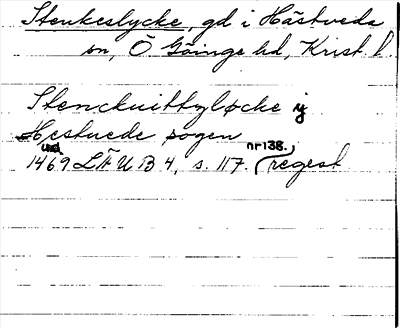 Stenkeslycke, gd i Hästveda
sn, Ö. Göinge hd, Krist. l.
Stenckuittzløcke ij
Hestuede sogen
und
1469 LÄUB 4, s. 117. nr 138. (regest